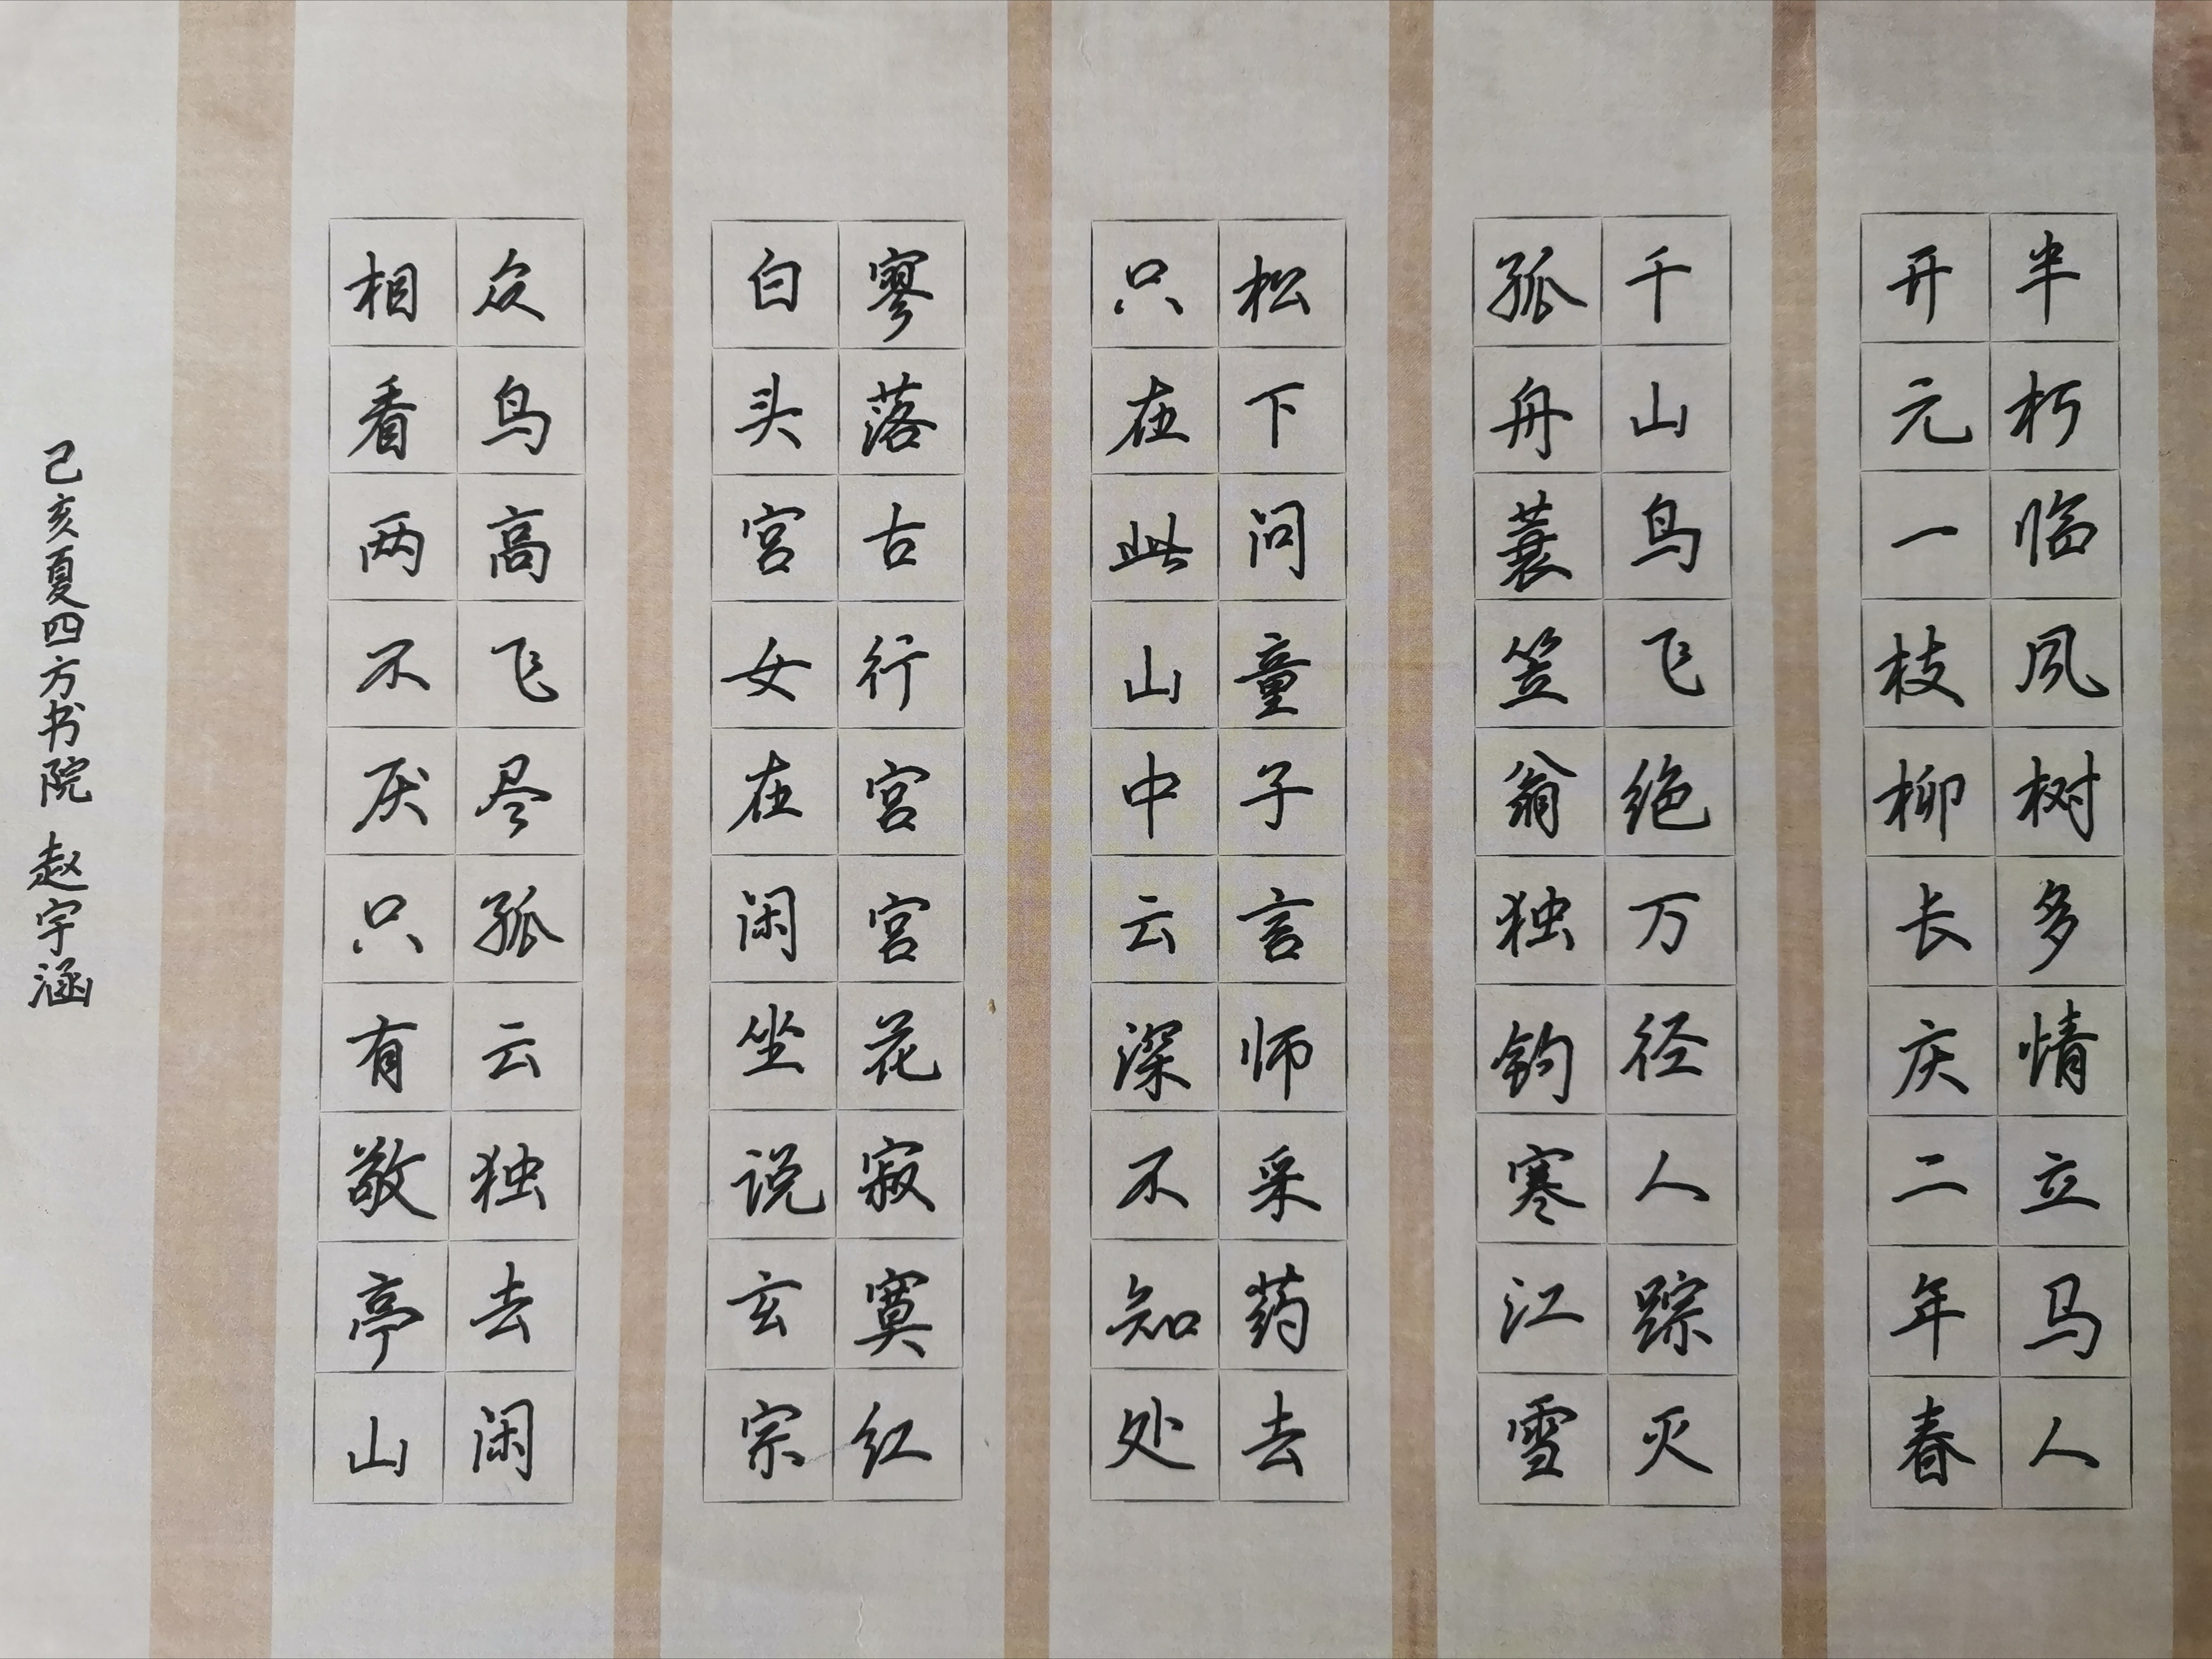 半朽临风树多情立马人
开元一枝柳长庆二年春
千山鸟飞绝万径人踪灭
孤舟蓑笠翁独钓寒江雪
松下问童子言师采药去
只在此山中云深不知处
寥落古行宫宫花寂寞红
白头宫女在闲坐说玄宗
众鸟高飞尽孤云独去闲
相看两不厌只有敬亭山
己亥夏四方书院 赵宇涵